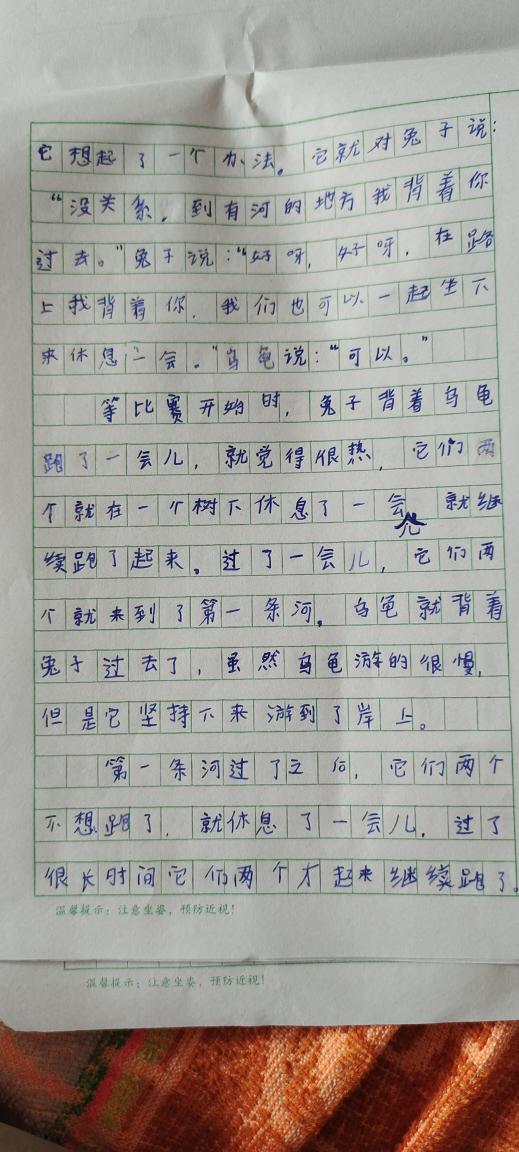 它想起了一个办法。它就对兔子说：
“没关系，到有河的地方我背着你
过去。”兔子说：“好呀，好呀，在路
上我背着你，我们也可以一起坐下
来休息一会。”乌龟说：“可以。”
等比赛开始时，兔子背着乌龟
跑了一会儿，就觉得很热，它们两
个就在一个树下休息了一会儿就继
续跑了起来。过了一会儿，它们两
个就来到了第一条河。乌龟就背着
兔子过去了，虽然乌龟游的很慢，
但是它坚持下来游到了岸上。
第一条河过了之后，它们两个
不想跑了，就休息了一会儿，过了
很长时间它们两个才起来继续跑了。
温馨提示：注意坐姿，预防近视！
温馨提示：注意坐姿，预防近视！